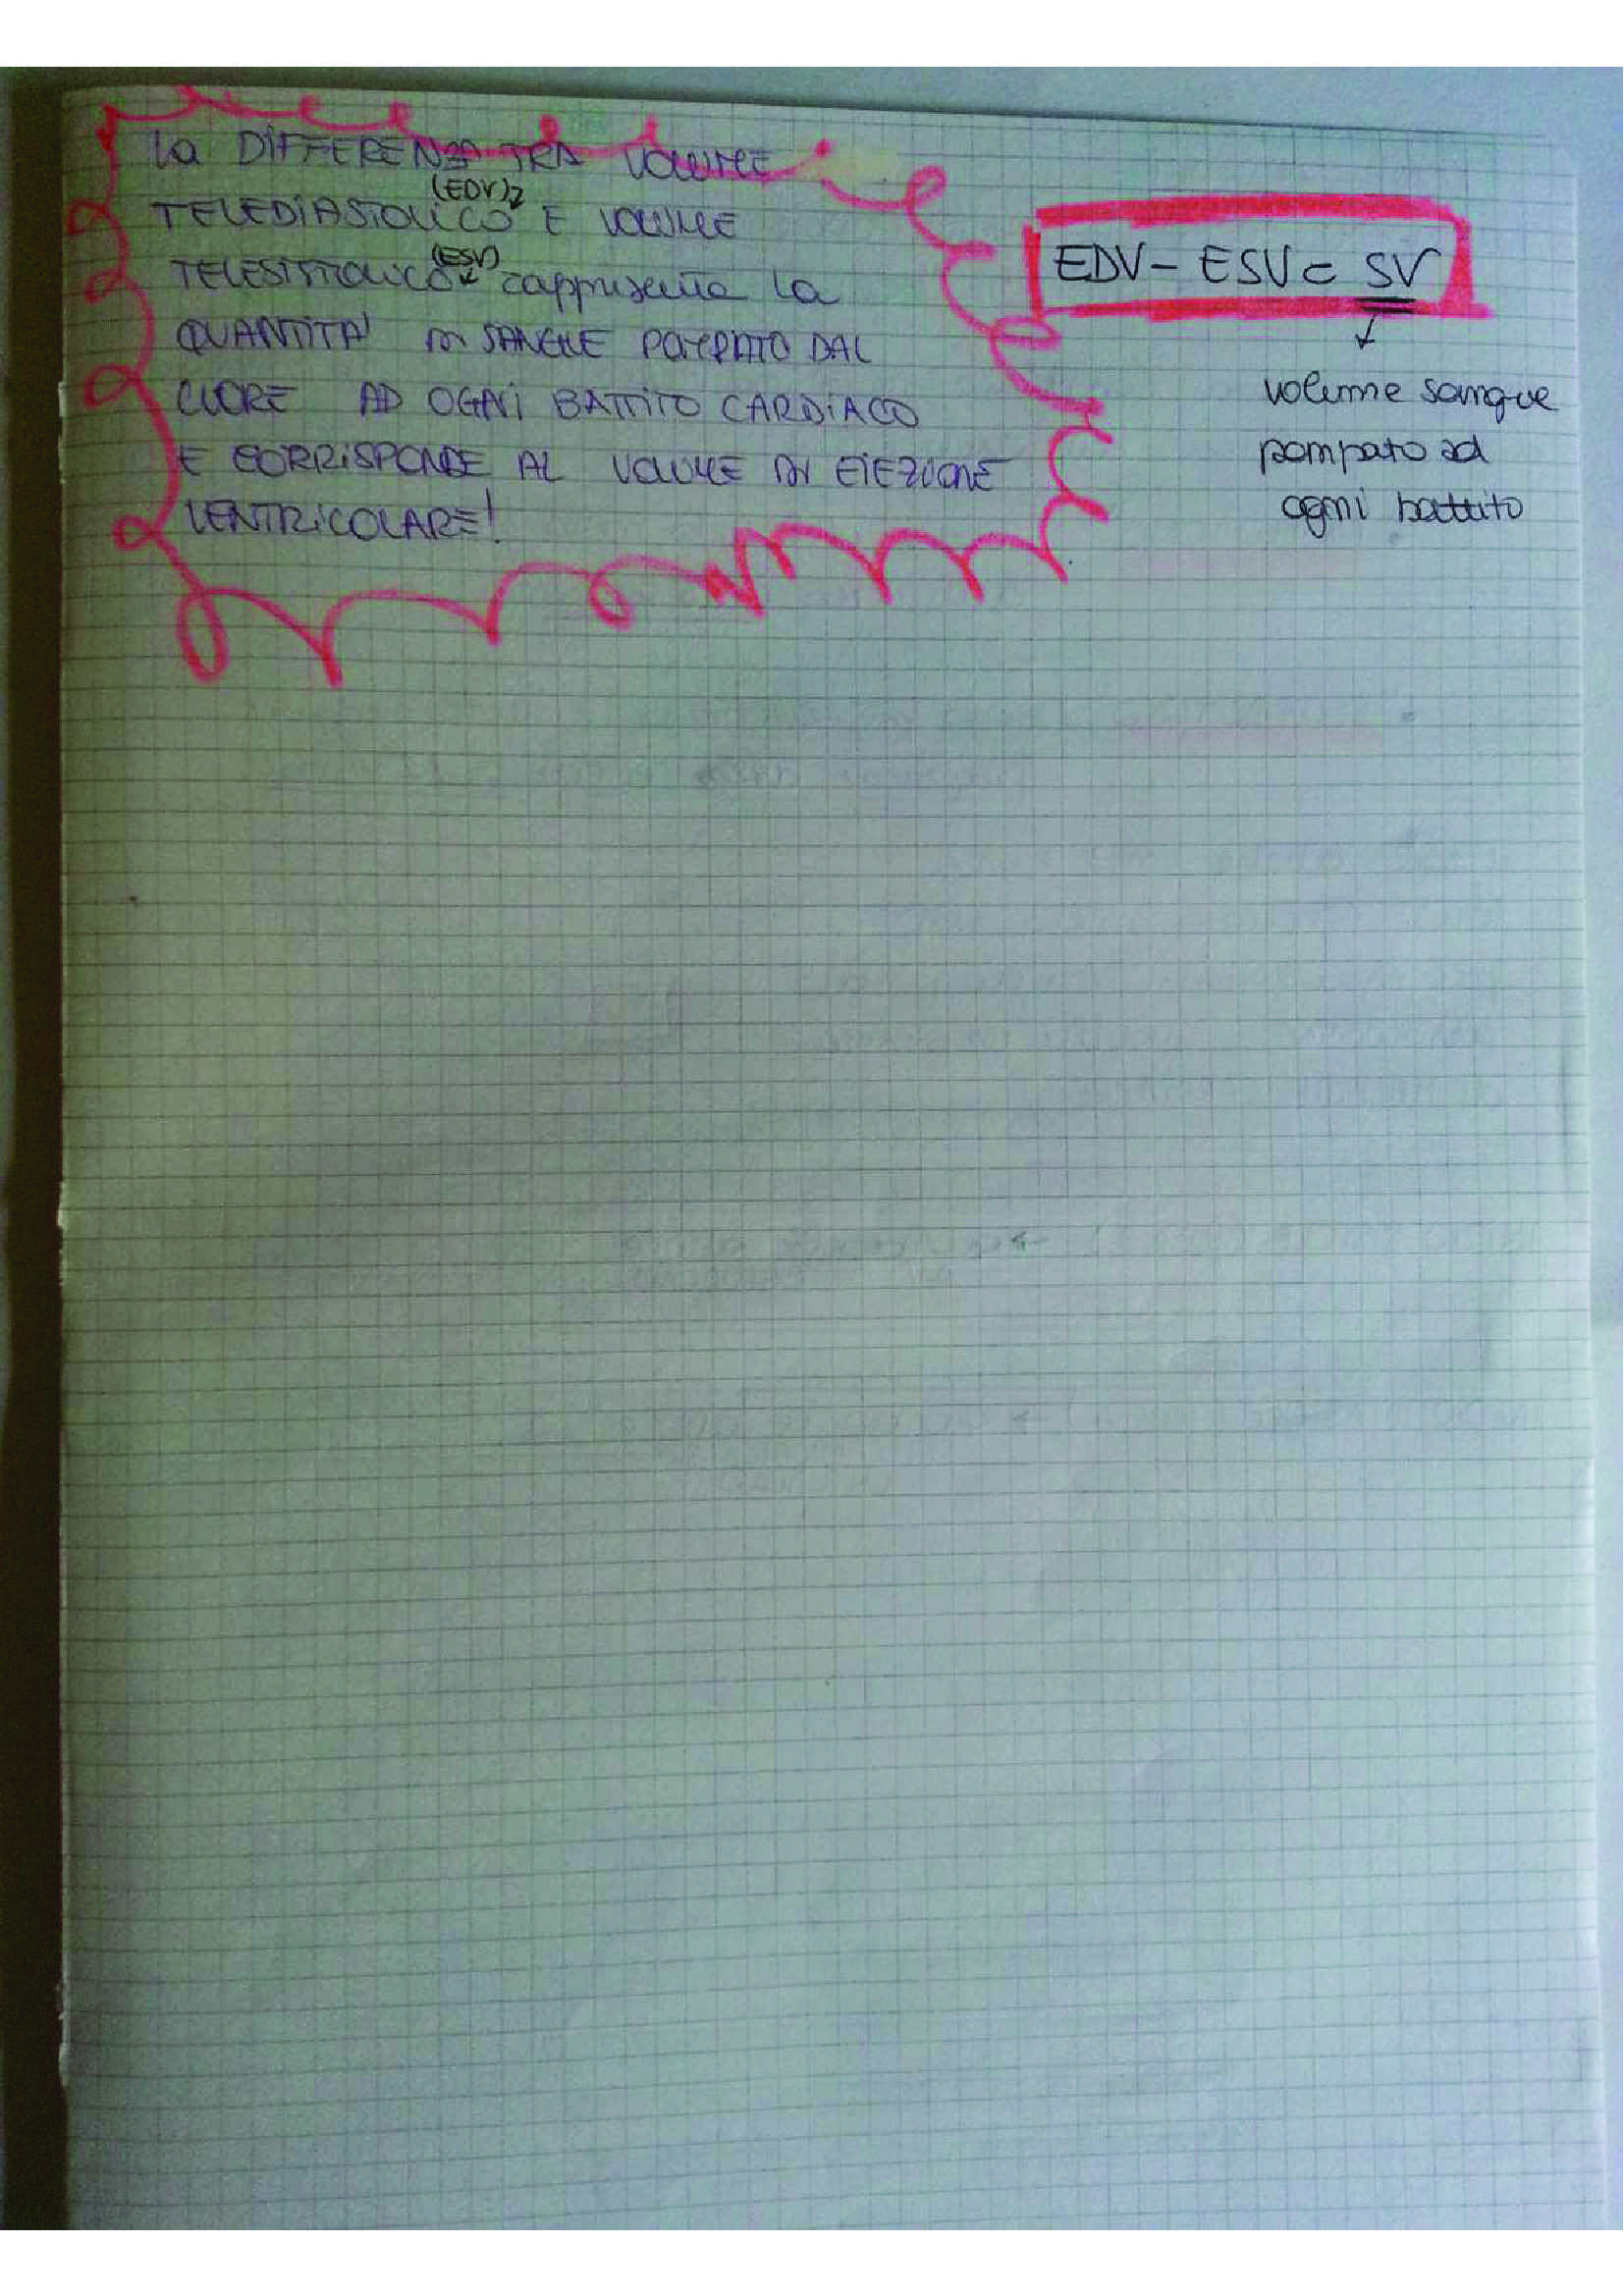 La DIFFERENZA TRA VOLUME
(EDV)
TELEDIASTOLICO E VOLUME
(ESV)
TELESISTOLICO rappresenta la
QUANTITA' DI SANGUE POMPATO DAL
CUORE AD OGNI BATTITO CARDIACO
E CORRISPONDE AL VOLUME DI EIEZIONE
VENTRICOLARE!
EDV - ESV = SV
↓
volume sangue
pompato ad
ogni battito